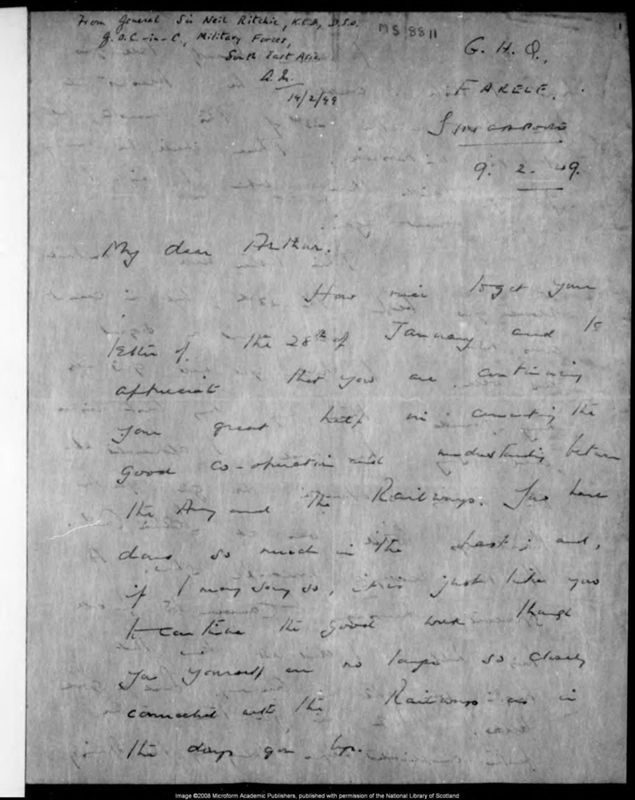 From General Sir Neil Ritchie, K.C.B., D.S.O.
G.O.C-in-C, Military Forces,
South East Asia
14/2/49
MS 8811
1
G. H. Q.,
FARELF.
SINGAPORE
9. 2. 49.
My dear Arthur.
How nice to get your
letter of the 28th of January and to
appreciate that you are continuing
your great help in cementing the
good co-operation and understanding between
the Army and the Railways. You have
done so much in the past; and,
if I may say so, it is just like you
to continue the good work though
you yourself are no longer so closely
connected with the Railways as in
the days gone by.
Image ©2008 Microform Academic Publishers, published with permission of the National Library of Scotland